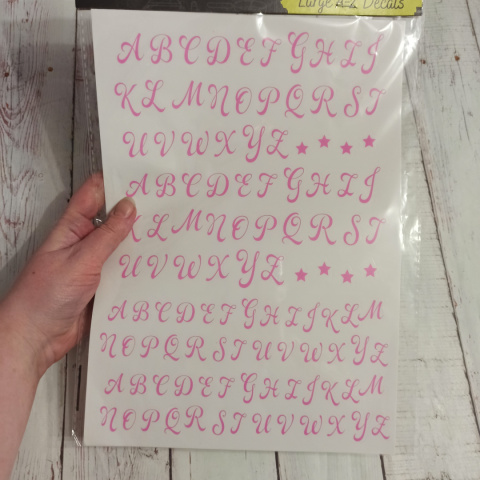 Large A-Z Decals
A B C D E F G H I J
K L M N O P Q R S T
U V W X Y Z
A B C D E F G H I J
K L M N O P Q R S T
U V W X Y Z
A B C D E F G H I J K L M
N O P Q R S T U V W X Y Z
A B C D E F G H I J K L M
N O P Q R S T U V W X Y Z